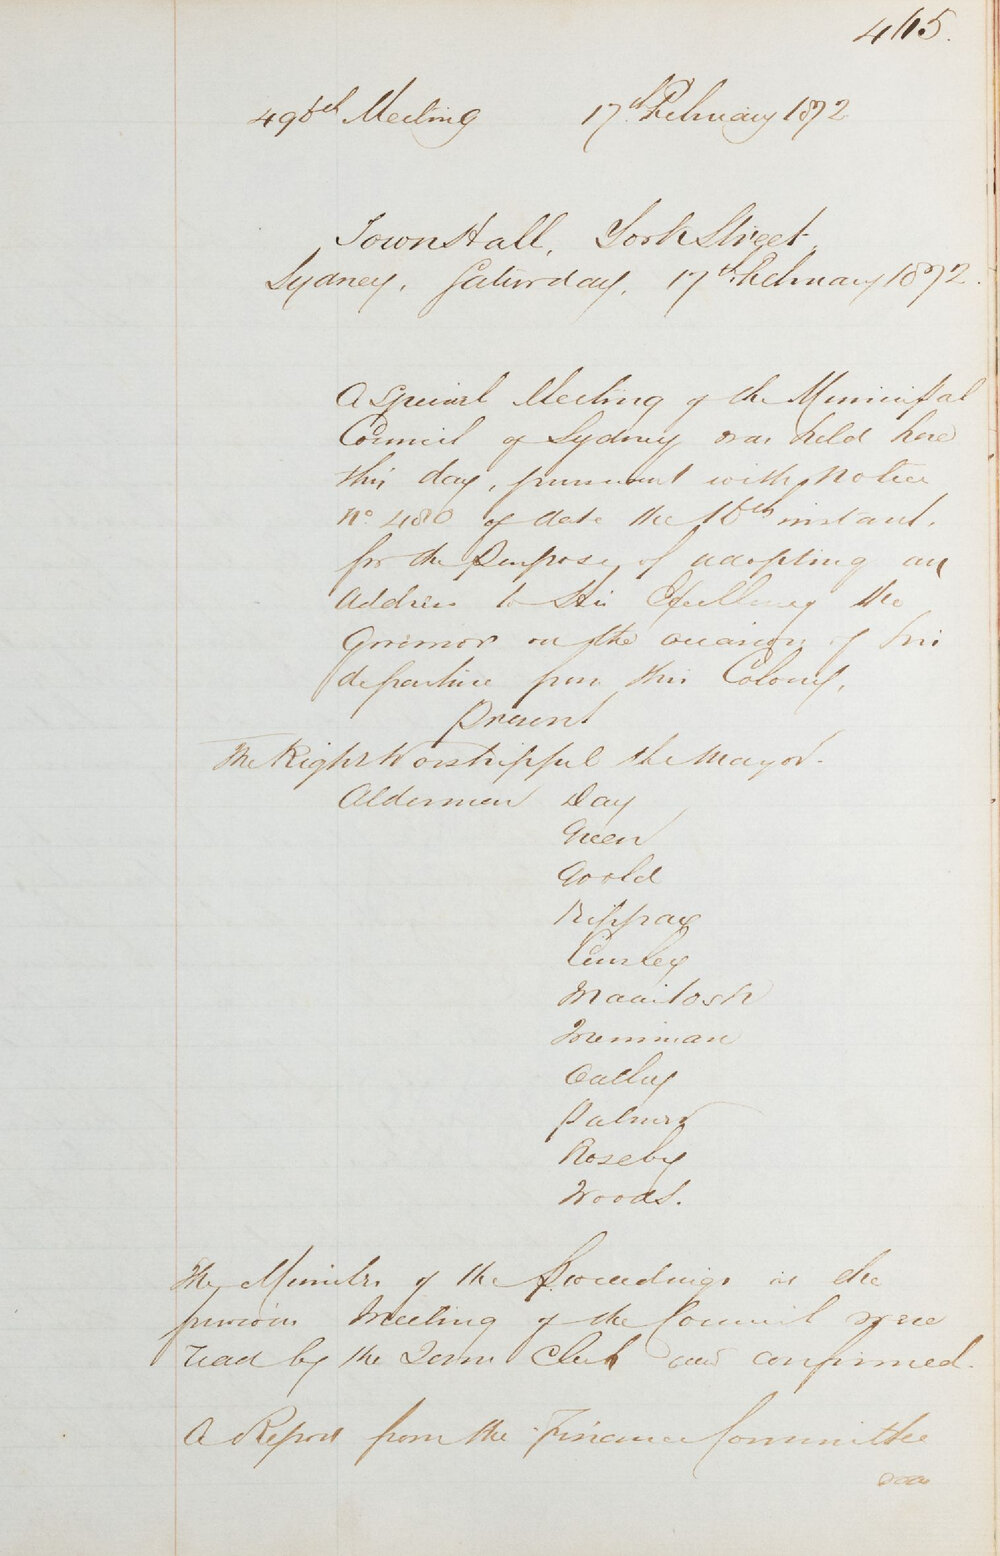 465.
496th Meeting 17th February 1872
Town Hall, York Street,
Sydney, Saturday, 17th February 1872.
A Special Meeting of the Municipal
Council of Sydney was held here
this day, pursuant with Notice
No 480 of date the 16th instant,
for the Purpose of adopting an
Address to His Excellency the
Governor on the occasion of his
departure from this Colony.
Present
The Right Worshipful the Mayor.
Aldermen Day
Green
Goold
Kippax
Curley
Macintosh
Merriman
Oatley
Palmer
Roseby
Woods.
The Minutes of the Proceedings at the
previous Meeting of the Council were
read by the Town Clerk and confirmed.
A Report from the Finance Committee
was